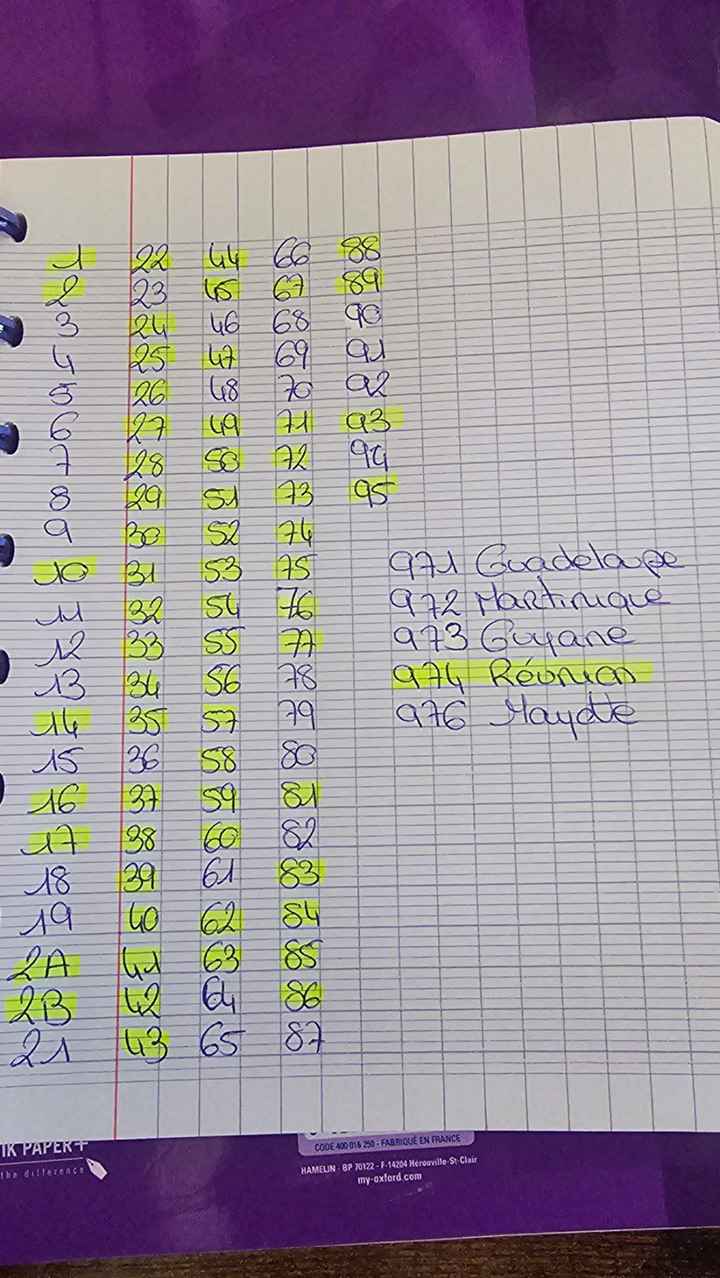 1 22 44 66 88
2 23 45 67 89
3 24 46 68 90
4 25 47 69 91
5 26 48 70 92
6 27 49 71 93
7 28 50 72 94
8 29 51 73 95
9 30 52 74
10 31 53 75 971 Guadeloupe
11 32 54 76 972 Martinique
12 33 55 77 973 Guyane
13 34 56 78 974 Réunion
14 35 57 79 976 Mayotte
15 36 58 80
16 37 59 81
17 38 60 82
18 39 61 83
19 40 62 84
2A 41 63 85
2B 42 64 86
21 43 65 87
IK PAPER+
the difference
CODE 400 016 250 - FABRIQUÉ EN FRANCE
HAMELIN - BP 70122 - F-14204 Hérouville-St-Clair
my-oxford.com